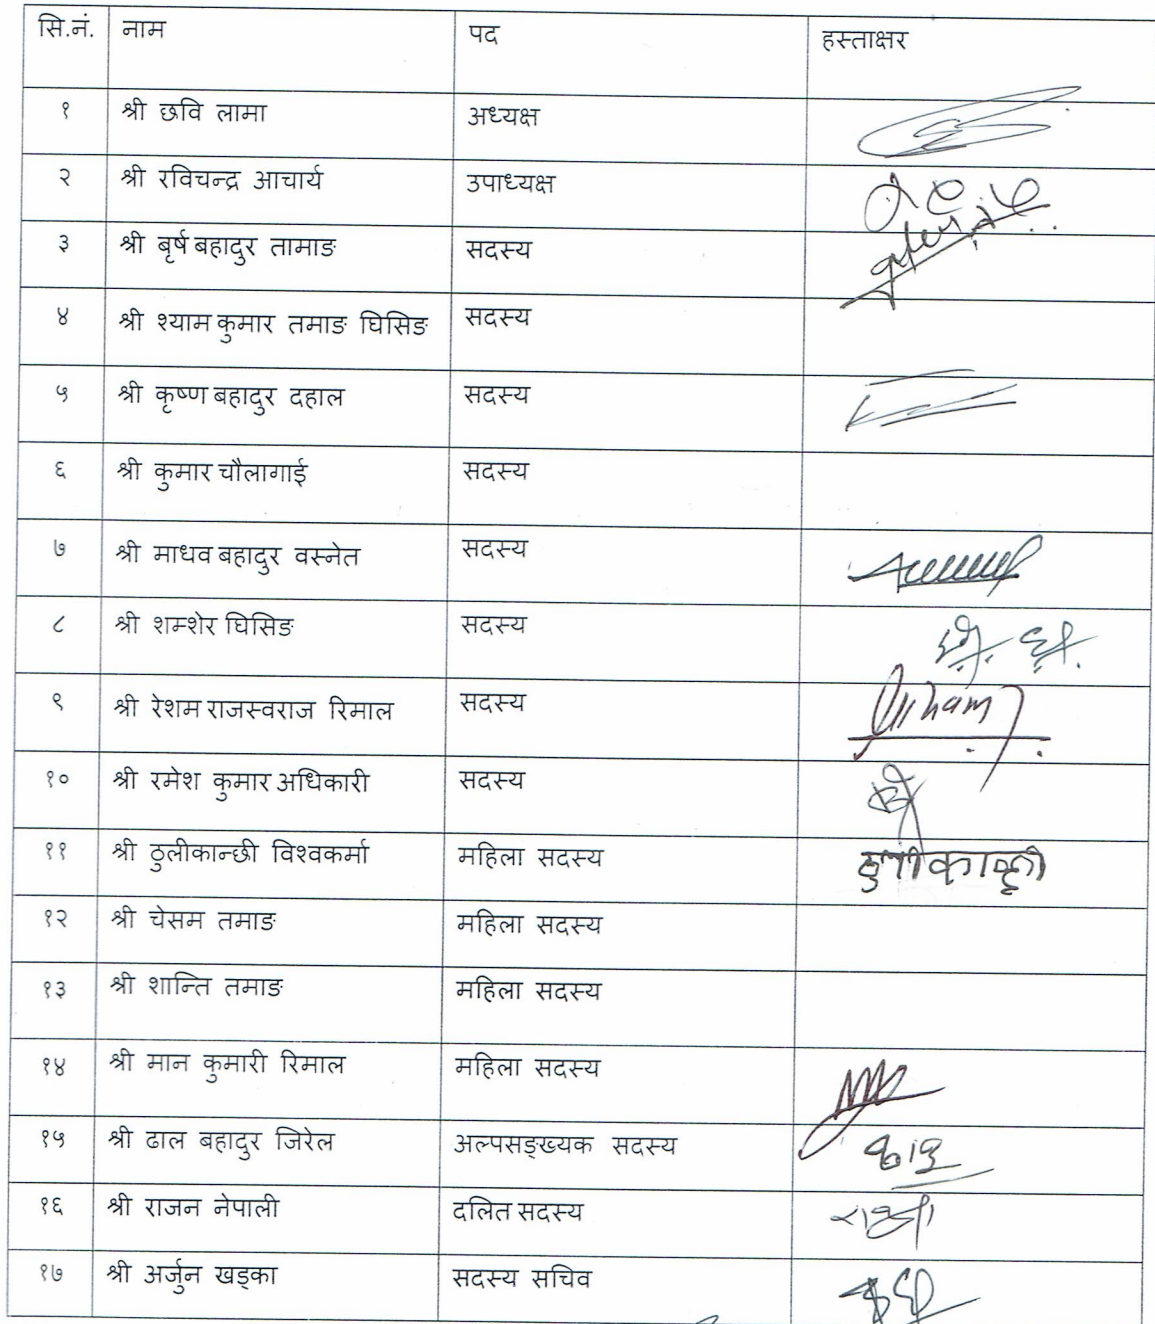 सि.नं. नाम पद हस्ताक्षर
१ श्री छवि लामा अध्यक्ष
२ श्री रविचन्द्र आचार्य उपाध्यक्ष
३ श्री बृर्ष बहादुर तामाङ सदस्य
४ श्री श्याम कुमार तमाङ घिसिङ सदस्य
५ श्री कृष्ण बहादुर दहाल सदस्य
६ श्री कुमार चौलागाई सदस्य
७ श्री माधव बहादुर वस्नेत सदस्य
८ श्री शम्शेर घिसिङ सदस्य
९ श्री रेशम राजस्वराज रिमाल सदस्य
१० श्री रमेश कुमार अधिकारी सदस्य
११ श्री ठुलीकान्छी विश्वकर्मा महिला सदस्य
१२ श्री चेसम तमाङ महिला सदस्य
१३ श्री शान्ति तमाङ महिला सदस्य
१४ श्री मान कुमारी रिमाल महिला सदस्य
१५ श्री ढाल बहादुर जिरेल अल्पसङ्ख्यक सदस्य
१६ श्री राजन नेपाली दलित सदस्य
१७ श्री अर्जुन खड्का सदस्य सचिव